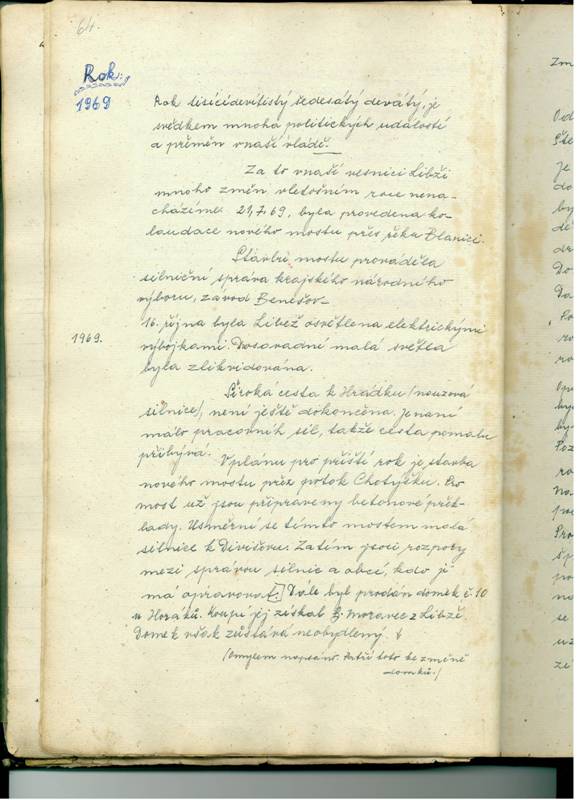 64.
Rok:
1969
Rok tisícídevítistý šedesátý devátý, je
svědkem mnoha politických událostí
a přeměn vnaší vládě.
Za to vnaší vesnici Libži
mnoho změn vletošním roce nena-
cházíme. 21,7.69, byla provedena ko-
laudace nového mostu přes řeku Blanici.
Stavbu mostu prováděla
silniční správa krajského národního
výboru, závod Benešov-
16. října byla Libež osvětlena elektrickými
1969.
výbojkami. Dosavadní malá světla
byla zlikvidována.
Široká cesta k Hrádku /nouzová
silnice/, není ještě dokončena. Je naní
málo pracovních sil, takže cesta pomalu
přibývá. Vplánu pro příští rok je stavba
nového mostu přez potok Chotýšku. Pro
most už jsou připraveny betonové přek-
lady. Usměrní se tímto mostem malá
silnice k Divišovu. Zatím jsou rozpory
mezi správou silnic a obcí, kdo ji
má opravovat. Dále byl prodán domek č. 10
u Horáků. Koupí jej získal Moravec z Libže.
Domek však zůstává neobydlený.
/Omylem napsáno. Patří toto ke změně
domků./